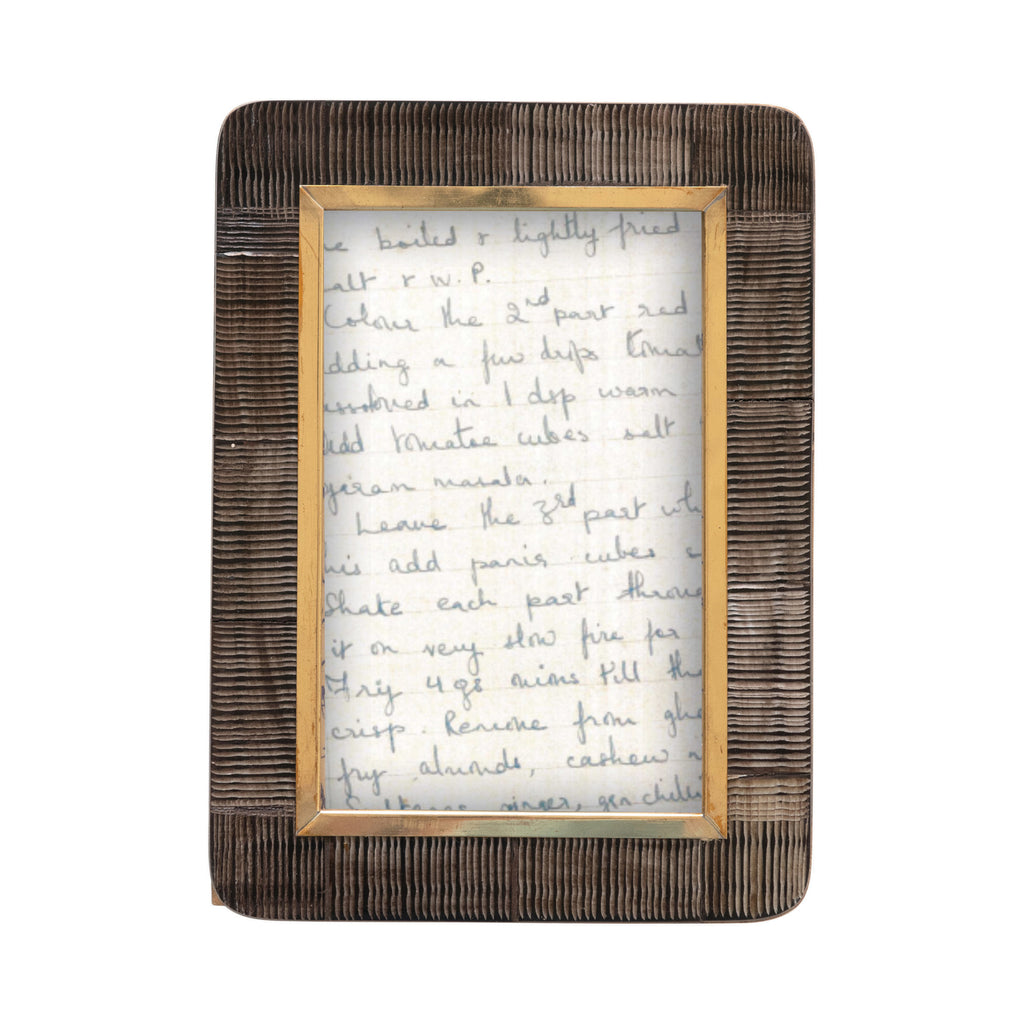 e boiled & lightly fried
alt & w. P.
Colour the 2nd part red
dding a few drops tomat
issolved in 1 dsp warm
Add tomatoe cubes, salt
garam masala.
Leave the 3rd part whi
his add panir cubes &
Shake each part throug
it on very slow fire for
Fry 4 gs onions till th
crisp. Remove from ghe
fry almonds, cashew n
Sultanas, ginger, grn chilli